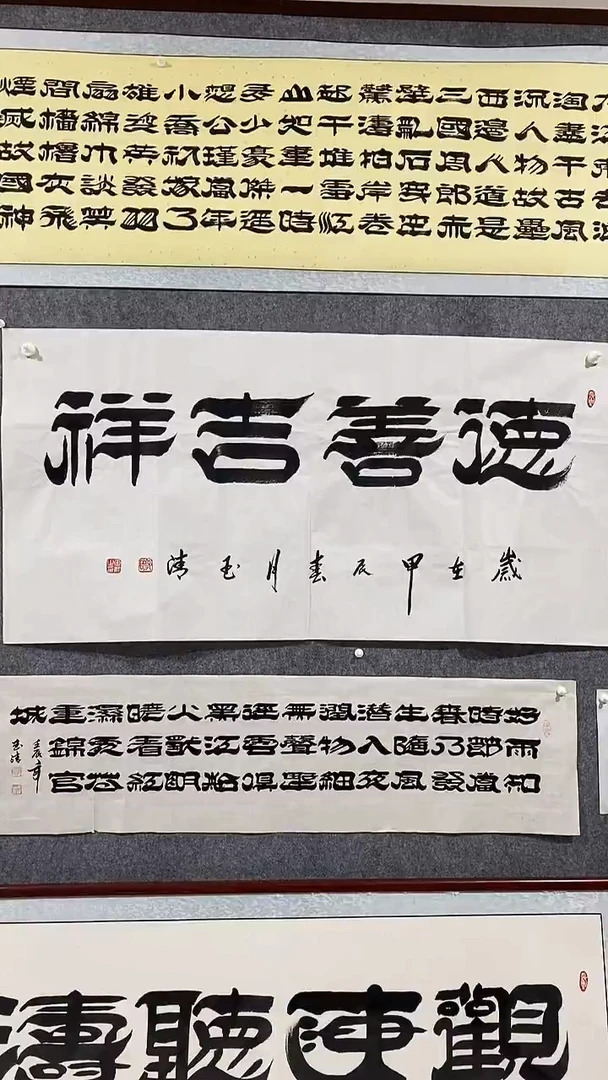 淘盡千古風
流人物故壘
西邊人道是
三國周郎赤
壁亂石穿空
驚濤拍岸卷
起千堆雪江
山如畫一時
多少豪傑遙
想公瑾當年
小喬初嫁了
雄姿英發羽
扇綸巾談笑
間檣櫓灰飛
煙滅故國神
德善吉祥
歲在甲辰春月玉清
好雨知
時節當
春乃發
生隨風
潛入夜
潤物細
無聲野
徑雲俱
黑江船
火獨明
曉看紅
濕處花
重錦官
城
玉清
觀海聽濤